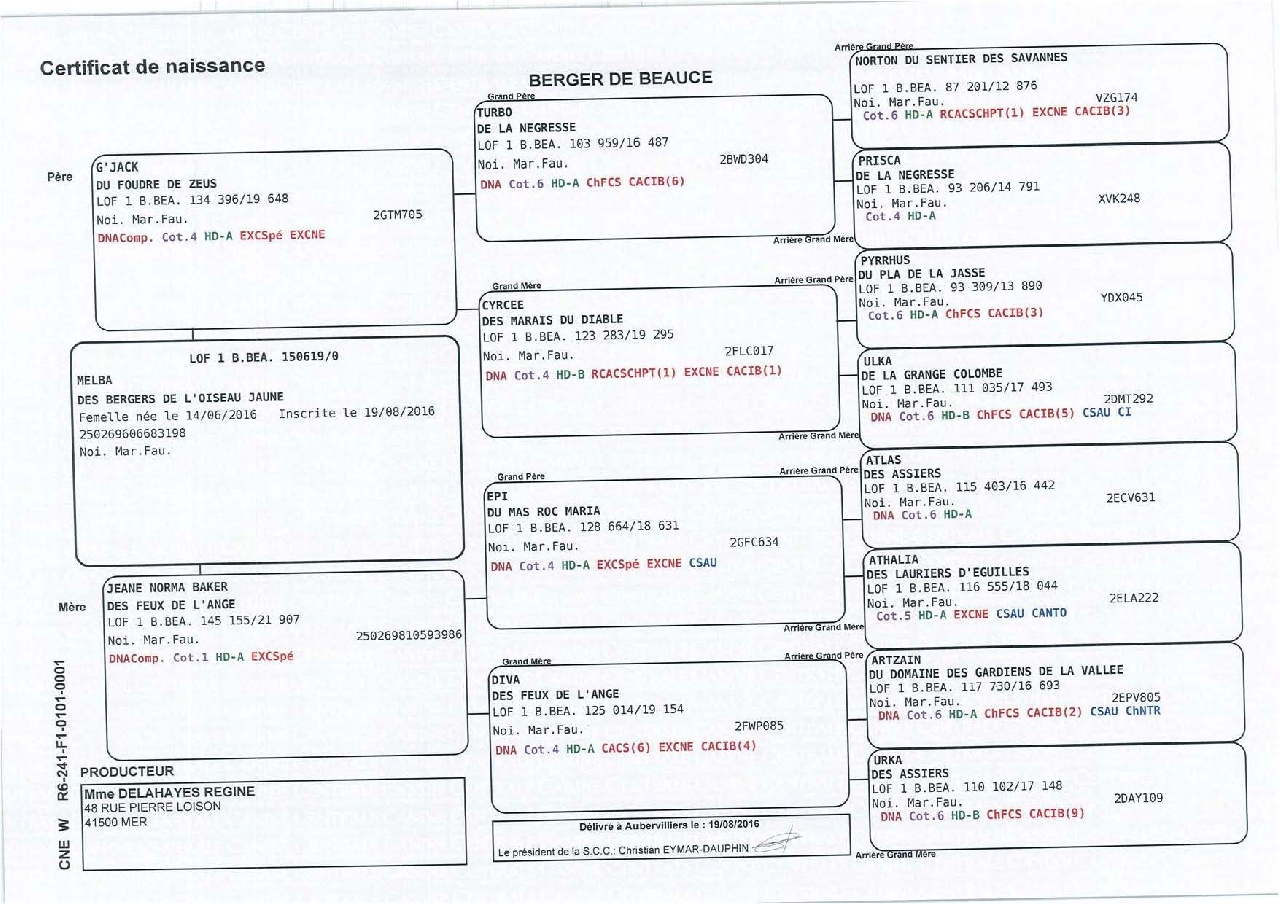 Certificat de naissance
BERGER DE BEAUCE
Père
G'JACK
DU FOUDRE DE ZEUS
LOF 1 B.BEA. 134 396/19 648
Noi. Mar.Fau. 2GTM705
DNAComp. Cot.4 HD-A EXCSpé EXCNE
LOF 1 B.BEA. 150619/0
MELBA
DES BERGERS DE L'OISEAU JAUNE
Femelle née le 14/06/2016 Inscrite le 19/08/2016
250269606683198
Noi. Mar.Fau.
Mère
JEANE NORMA BAKER
DES FEUX DE L'ANGE
LOF 1 B.BEA. 145 155/21 907
Noi. Mar.Fau. 250269810593986
DNAComp. Cot.1 HD-A EXCSpé
Grand Père
TURBO
DE LA NEGRESSE
LOF 1 B.BEA. 103 959/16 487
Noi. Mar.Fau. 2BWD304
DNA Cot.6 HD-A ChFCS CACIB(6)
Grand Mère
CYRCEE
DES MARAIS DU DIABLE
LOF 1 B.BEA. 123 283/19 295
Noi. Mar.Fau. 2FLC017
DNA Cot.4 HD-B RCACSCHPT(1) EXCNE CACIB(1)
Grand Père
EPI
DU MAS ROC MARIA
LOF 1 B.BEA. 128 664/18 631
Noi. Mar.Fau. 2GFC634
DNA Cot.4 HD-A EXCSpé EXCNE CSAU
Grand Mère
DIVA
DES FEUX DE L'ANGE
LOF 1 B.BEA. 125 014/19 154
Noi. Mar.Fau. 2FWP085
DNA Cot.4 HD-A CACS(6) EXCNE CACIB(4)
Arrière Grand Père
NORTON DU SENTIER DES SAVANNES
LOF 1 B.BEA. 87 201/12 876
Noi. Mar.Fau. VZG174
Cot.6 HD-A RCACSCHPT(1) EXCNE CACIB(3)
PRISCA
DE LA NEGRESSE
LOF 1 B.BEA. 93 206/14 791
Noi. Mar.Fau. XVK248
Cot.4 HD-A
Arrière Grand Mère
Arrière Grand Père
PYRRHUS
DU PLA DE LA JASSE
LOF 1 B.BEA. 93 309/13 890
Noi. Mar.Fau. YDX045
Cot.6 HD-A ChFCS CACIB(3)
ULKA
DE LA GRANGE COLOMBE
LOF 1 B.BEA. 111 035/17 493
Noi. Mar.Fau. 2DMT292
DNA Cot.6 HD-B ChFCS CACIB(5) CSAU CI
Arrière Grand Mère
Arrière Grand Père
ATLAS
DES ASSIERS
LOF 1 B.BEA. 115 403/16 442
Noi. Mar.Fau. 2ECV631
DNA Cot.6 HD-A
ATHALIA
DES LAURIERS D'EGUILLES
LOF 1 B.BEA. 116 555/18 044
Noi. Mar.Fau. 2ELA222
Cot.5 HD-A EXCNE CSAU CANTO
Arrière Grand Mère
Arrière Grand Père
ARTZAIN
DU DOMAINE DES GARDIENS DE LA VALLEE
LOF 1 B.BEA. 117 730/16 693
Noi. Mar.Fau. 2EPV805
DNA Cot.6 HD-A ChFCS CACIB(2) CSAU ChNTR
URKA
DES ASSIERS
LOF 1 B.BEA. 110 102/17 148
Noi. Mar.Fau. 2DAY109
DNA Cot.6 HD-B ChFCS CACIB(9)
Arrière Grand Mère
CNE W R6-241-F1-0101-0001
PRODUCTEUR
Mme DELAHAYES REGINE
48 RUE PIERRE LOISON
41500 MER
Délivré à Aubervilliers le : 19/08/2016
Le président de la S.C.C.: Christian EYMAR-DAUPHIN